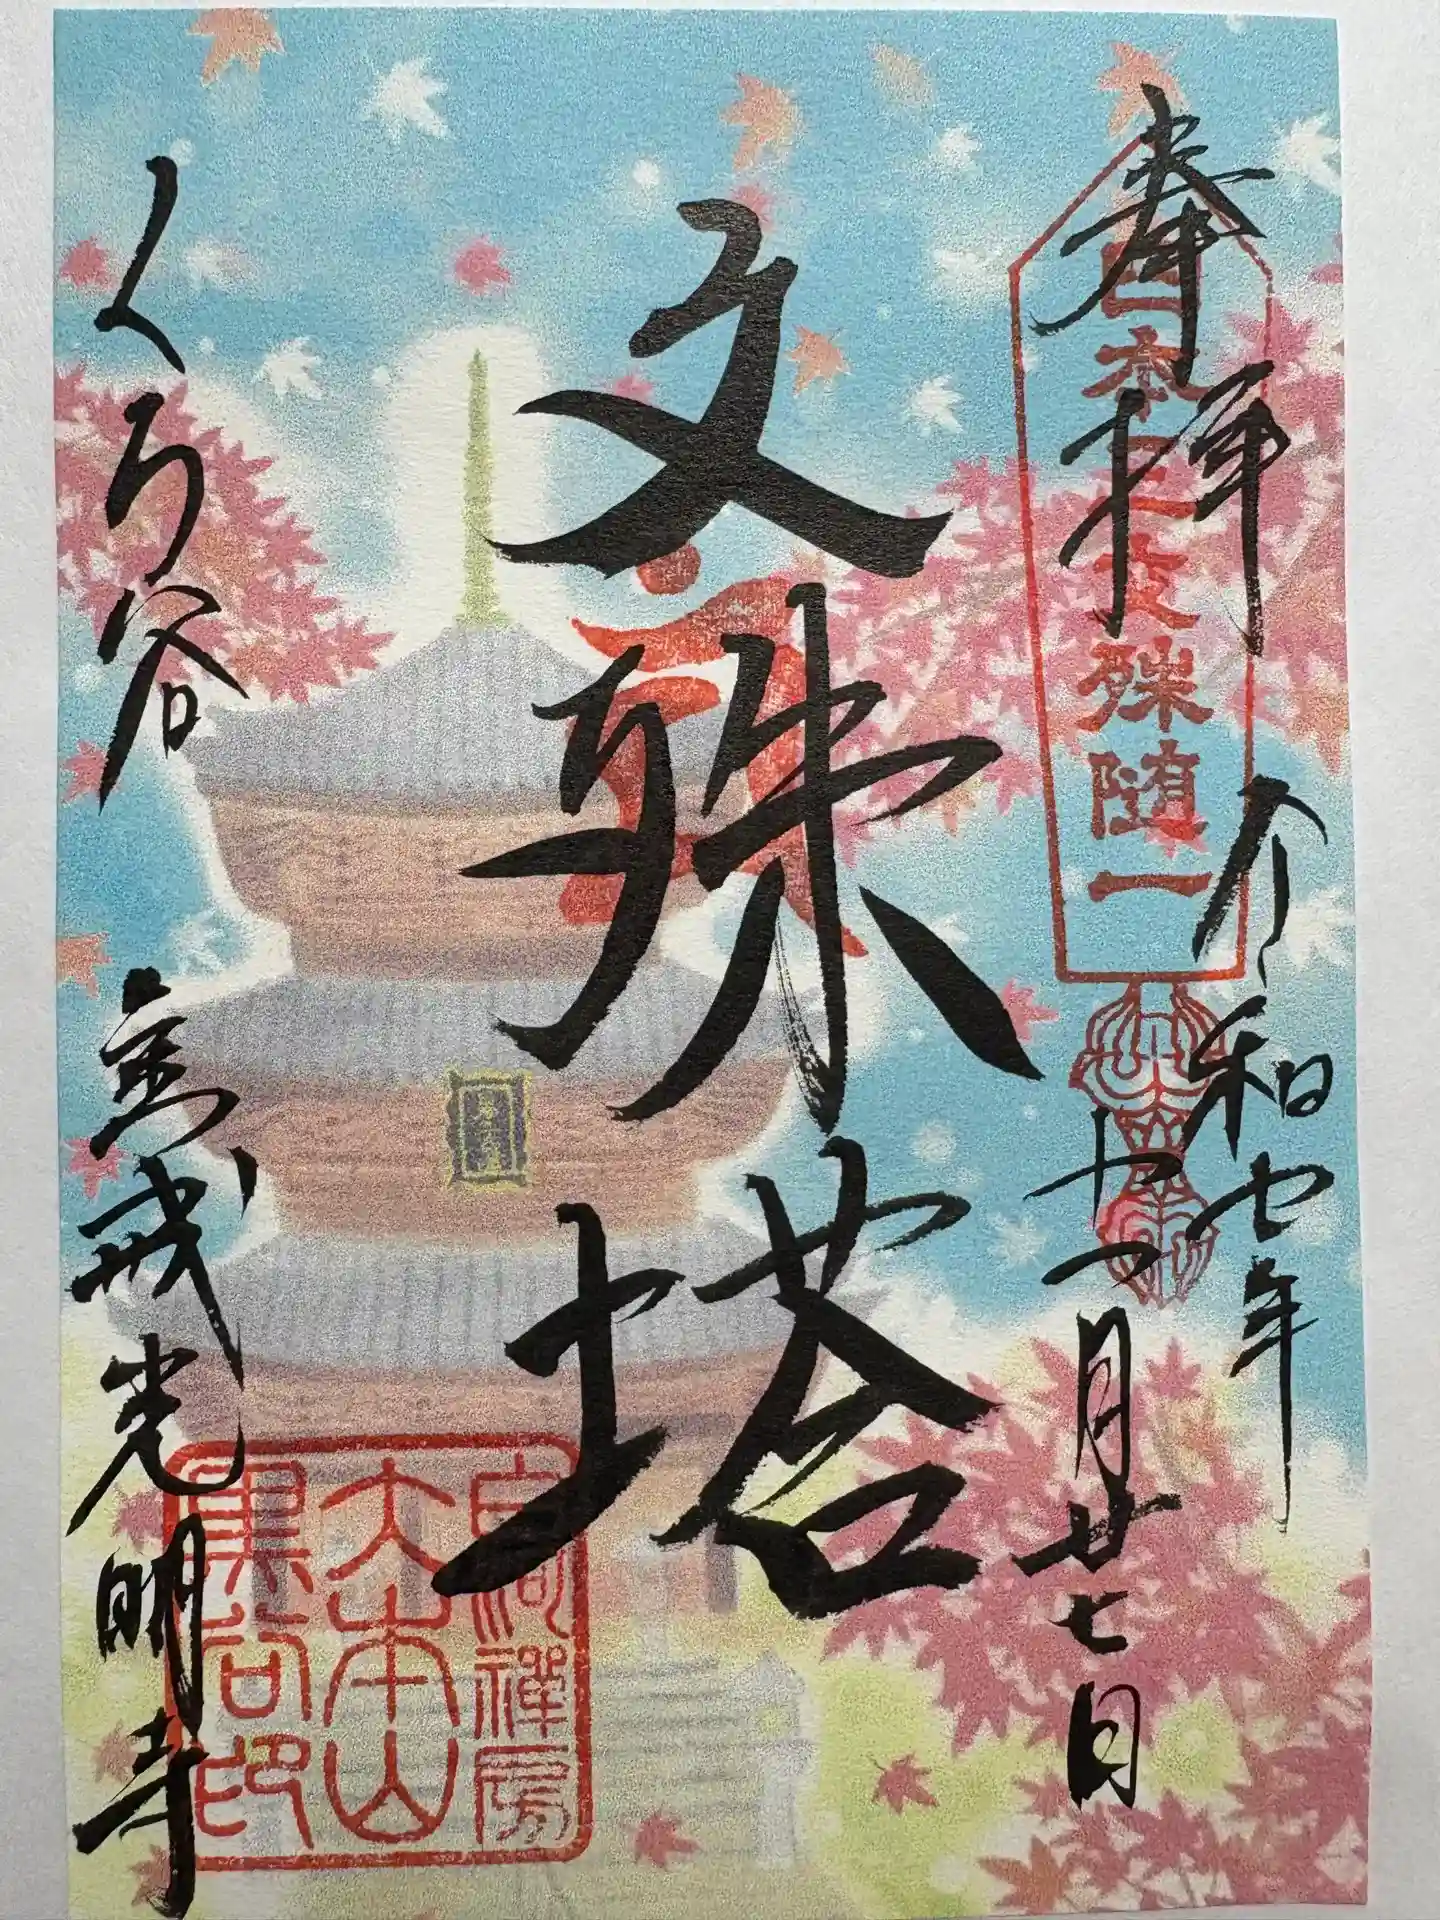 奉拝
日本三文殊随一
令和七年
十一月廿七日
文殊塔
くろ谷
金戒光明寺
大本山
黒谷印
禅房